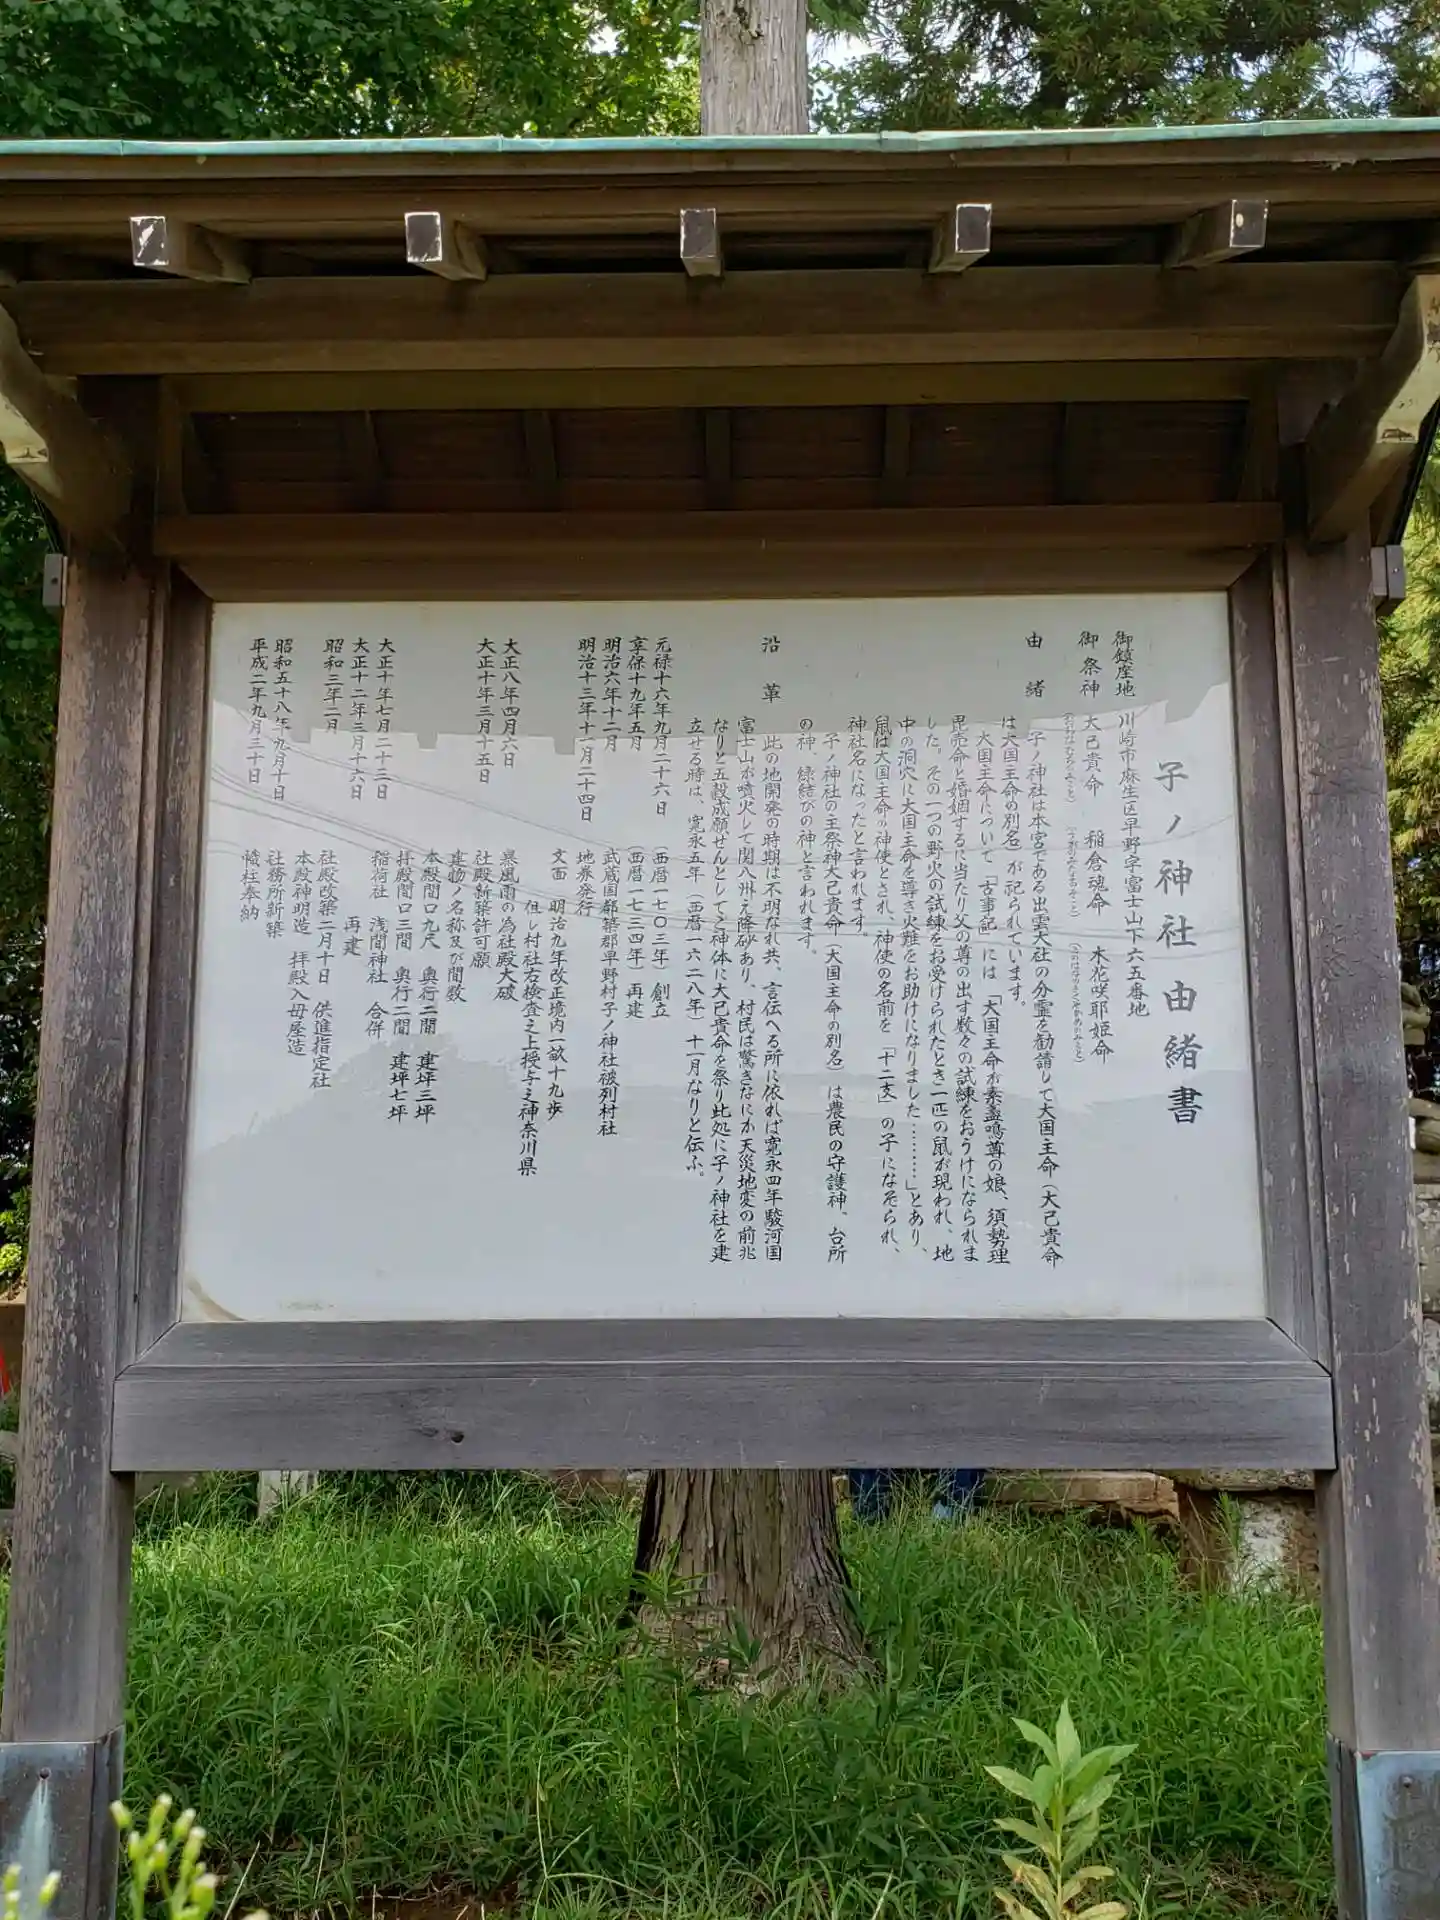 子ノ神社 由緒書
御鎮座地 川崎市麻生区早野字富士山下六五番地
御祭神 大己貴命 稲倉魂命 木花咲耶姫命
由緒
子ノ神社は本宮である出雲大社の分霊を勧請して大国主命(大己貴命
は大国主命の別名)が祀られています。
大国主命について「古事記」には「大国主命が素盞鳴尊の娘、須勢理
毘売命と婚姻するに当たり父の尊の出す数々の試練をおうけになられま
した。その一つの野火の試練をお受けられたとき一匹の鼠が現われ、地
中の洞穴に大国主命を導き火難をお助けになりました………」とあり、
鼠は大国主命の神使とされ、神使の名前を「十二支」の子になぞられ、
神社名になったと言われます。
子ノ神社の主祭神大己貴命(大国主命の別名)は農民の守護神、台所
の神、縁結びの神と言われます。
沿革
此の地開発の時期は不明なれ共、言伝へる所に依れば寛永四年駿河国
富士山が噴火して関八州え降砂あり、村民は驚きなにか天災地変の前兆
なりと五穀成願せんとしてご神体に大己貴命を祭り此処に子ノ神社を建
立せる時は、寛永五年(西暦一六二八年)十一月なりと伝ふ。
元禄十六年九月二十六日 (西暦一七〇三年)創立
享保十九年五月 (西暦一七三四年)再建
明治六年十二月 武蔵国都築郡早野村子ノ神社被列村社
明治十三年十一月二十四日 地券発行
文面 明治九年改正境内一畝十九歩
但し村社右検査之上授与之神奈川県
大正八年四月六日 暴風雨の為社殿大破
大正十年三月十五日 社殿新築許可願
建物ノ名称及び間数
本殿間口九尺 奥行二間 建坪三坪
拝殿間口三間 奥行二間 建坪七坪
大正十年七月二十三日 稲荷社 浅間神社 合併
大正十二年三月十六日 再建
昭和三年二月 社殿改築二月十日 供進指定社
本殿神明造 拝殿入母屋造
昭和五十八年九月十日 社務所新築
平成二年九月三十日 幟柱奉納